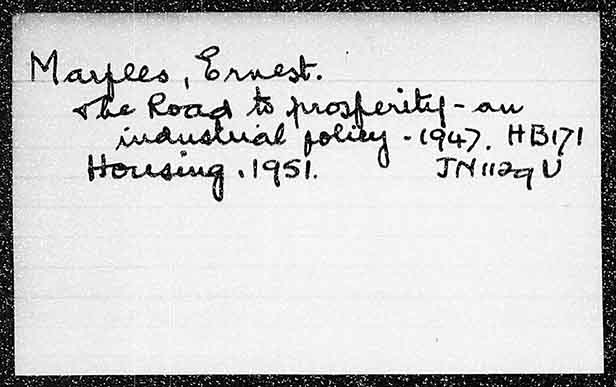 Marples, Ernest.
The Road to prosperity - an
industrial policy - 1947. HB171
Housing. 1951. JN1129U